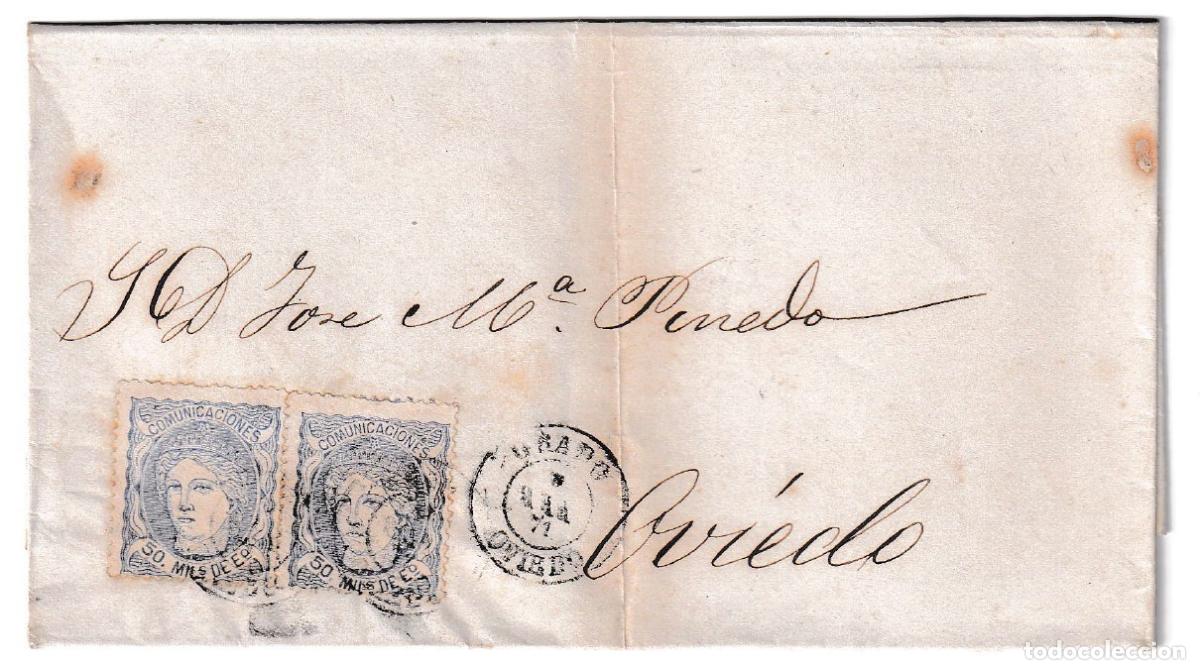 S D José Mª. Pinedo
COMUNICACIONES
50. MILS DE Eº
COMUNICACIONES
50 MILS DE Eº
OVIEDO
Oviedo
todocoleccion